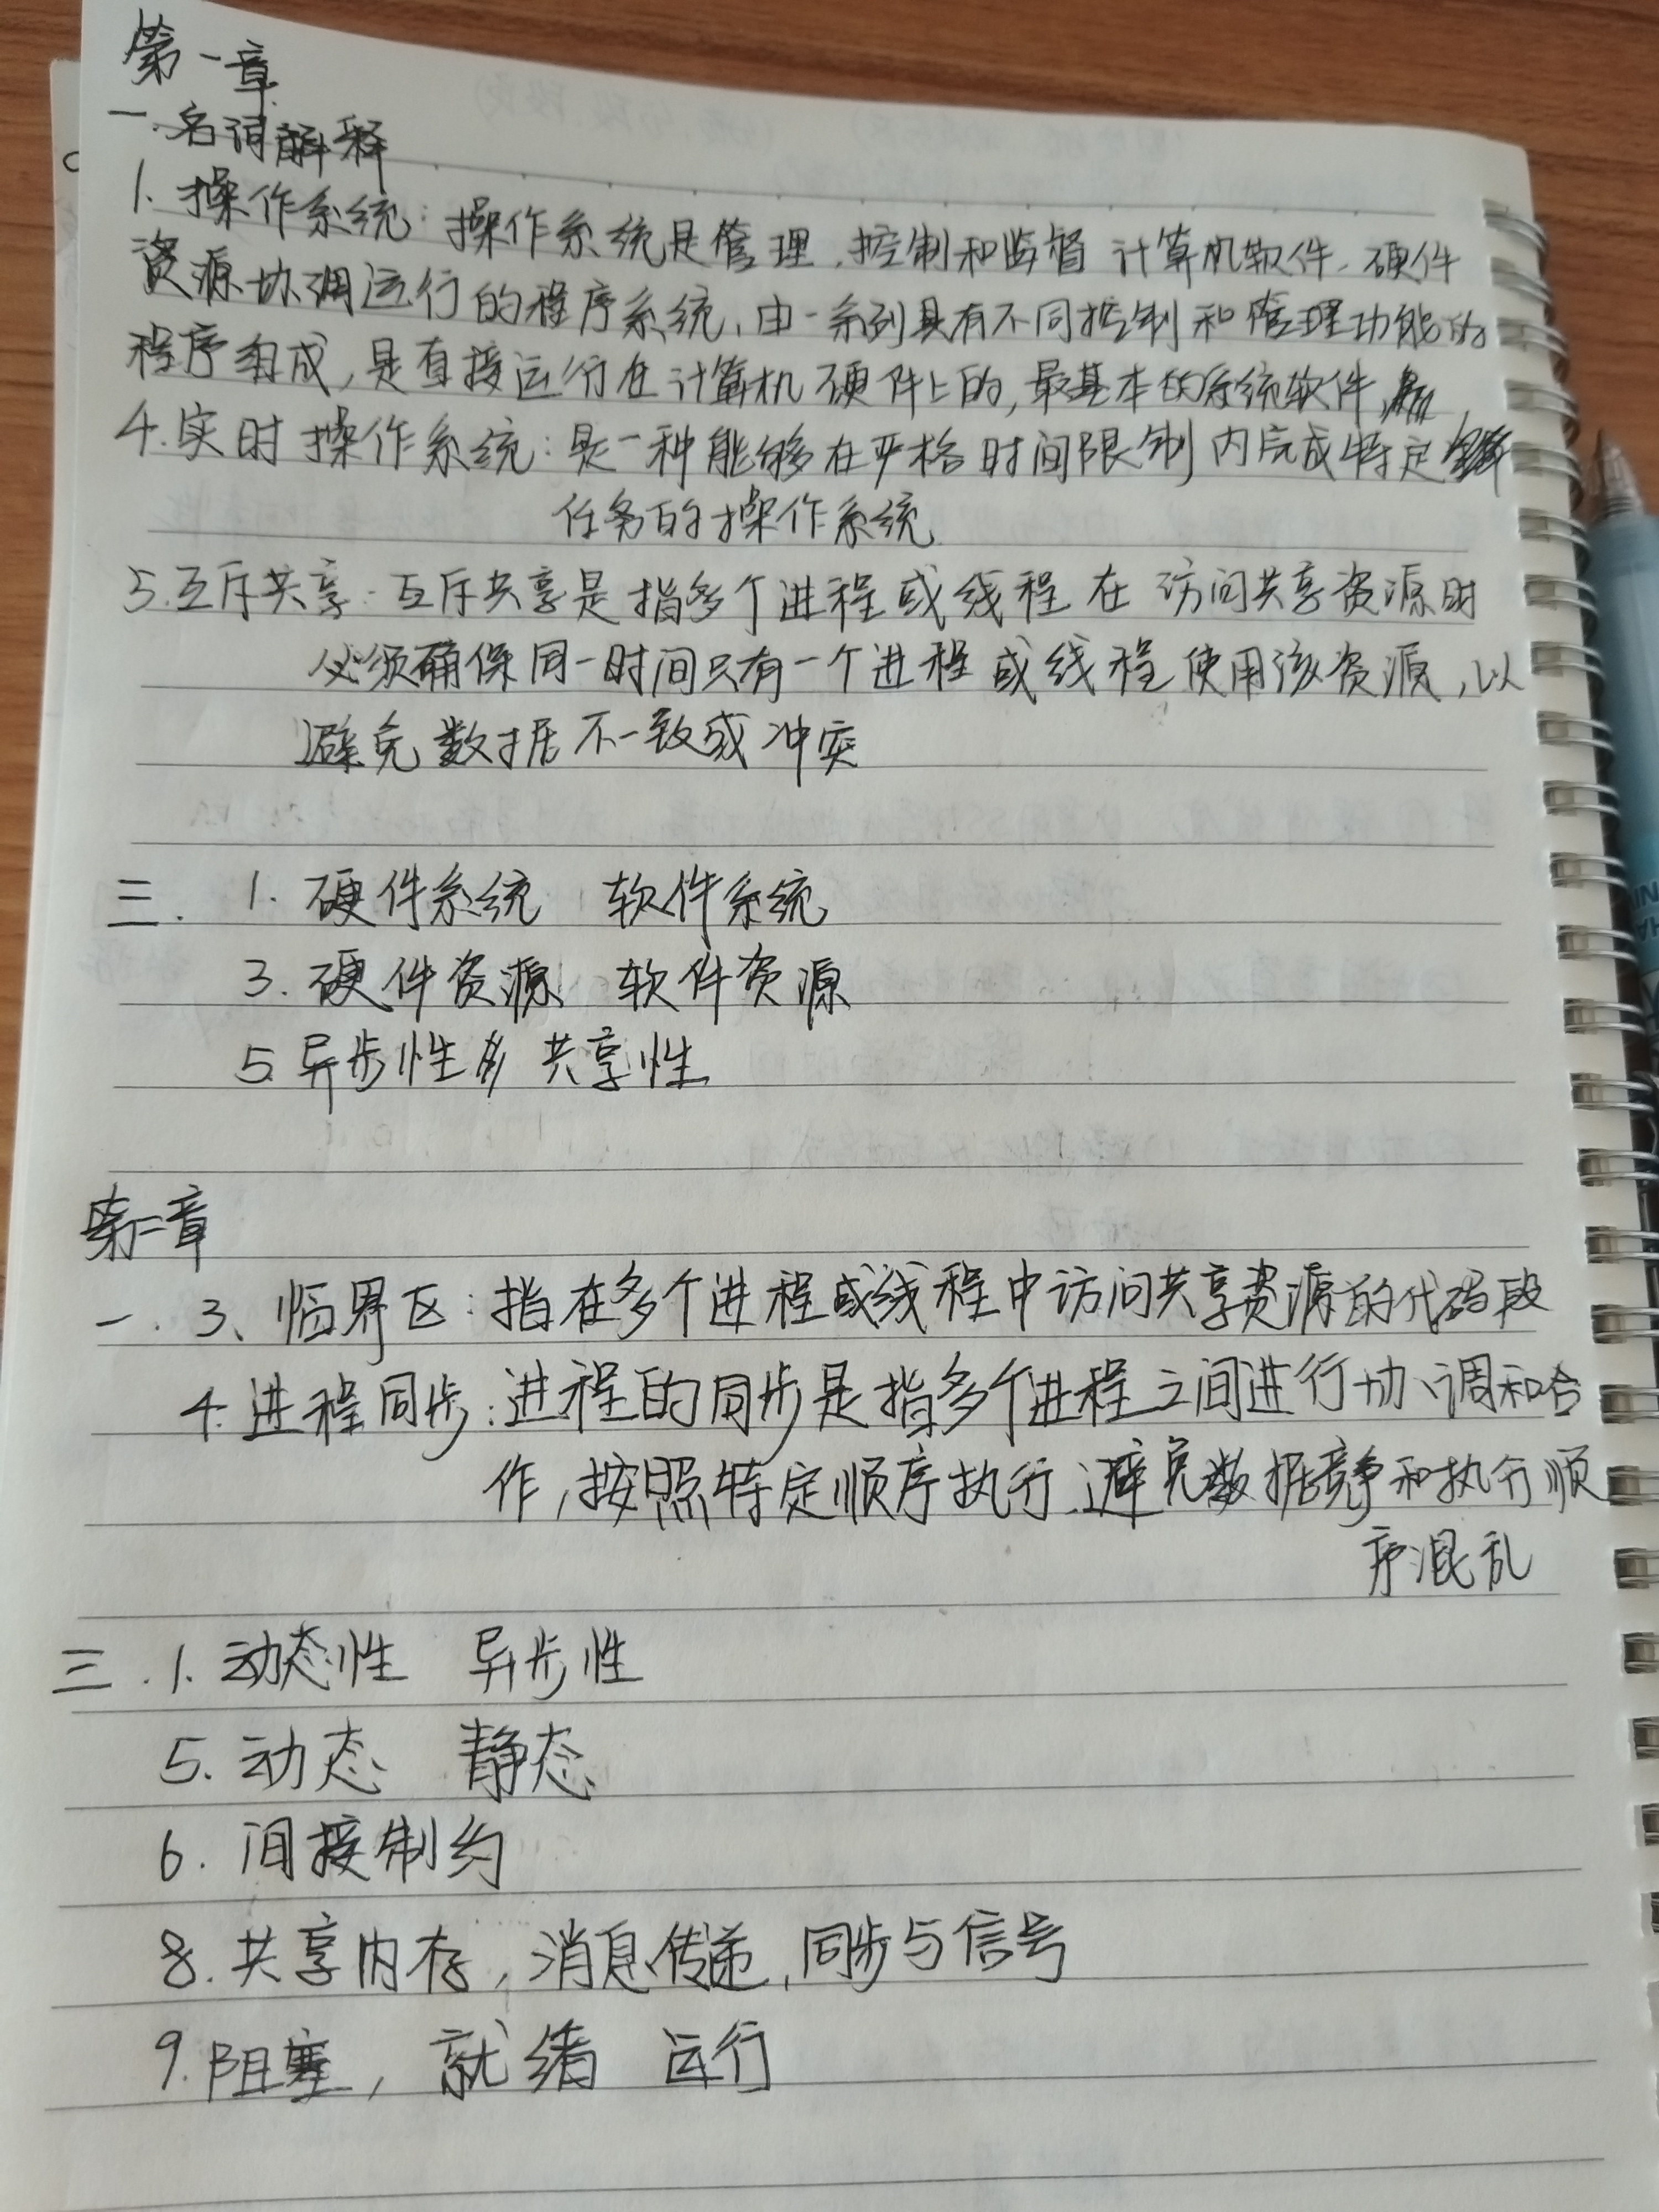 第一章
一.名词解释
1.操作系统:操作系统是管理、控制和监督计算机软件、硬件
资源协调运行的程序系统,由一系列具有不同控制和管理功能的
程序组成,是直接运行在计算机硬件上的,最基本的系统软件,
4.实时操作系统:是一种能够在严格时间限制内完成特定
任务的操作系统
5.互斥共享:互斥共享是指多个进程或线程在访问共享资源时
必须确保同一时间只有一个进程或线程使用该资源,以
避免数据不一致或冲突
三. 1.硬件系统 软件系统
3.硬件资源 软件资源
5.异步性 共享性
第二章
一.3、临界区:指在多个进程或线程中访问共享资源的代码段
4.进程同步:进程的同步是指多个进程之间进行协调和合
作,按照特定顺序执行.避免数据竞争和执行顺
序混乱
三.1.动态性 异步性
5.动态 静态
6.间接制约
8.共享内存,消息传递,同步与信号
9.阻塞,就绪 运行